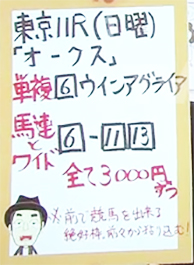 東京11R(日曜)
「オークス」
単複6ウインアグライア
馬連とワイド
6-11 13
全て3000円ずつ
※前で競馬を出来る